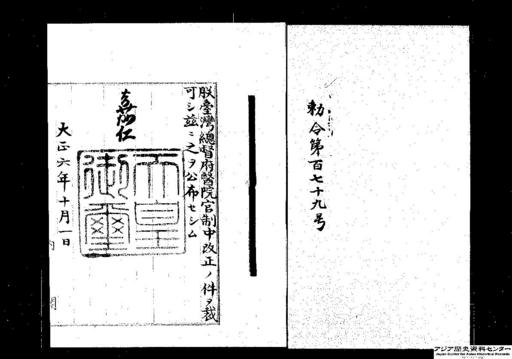 勅令第百七十九号
朕臺灣總督府醫院官制中改正ノ件ヲ裁
可シ茲ニ之ヲ公布セシム
嘉仁
天皇
御璽
大正六年十月一日
アジア歴史資料センター
Japan Center for Asian Historical Records